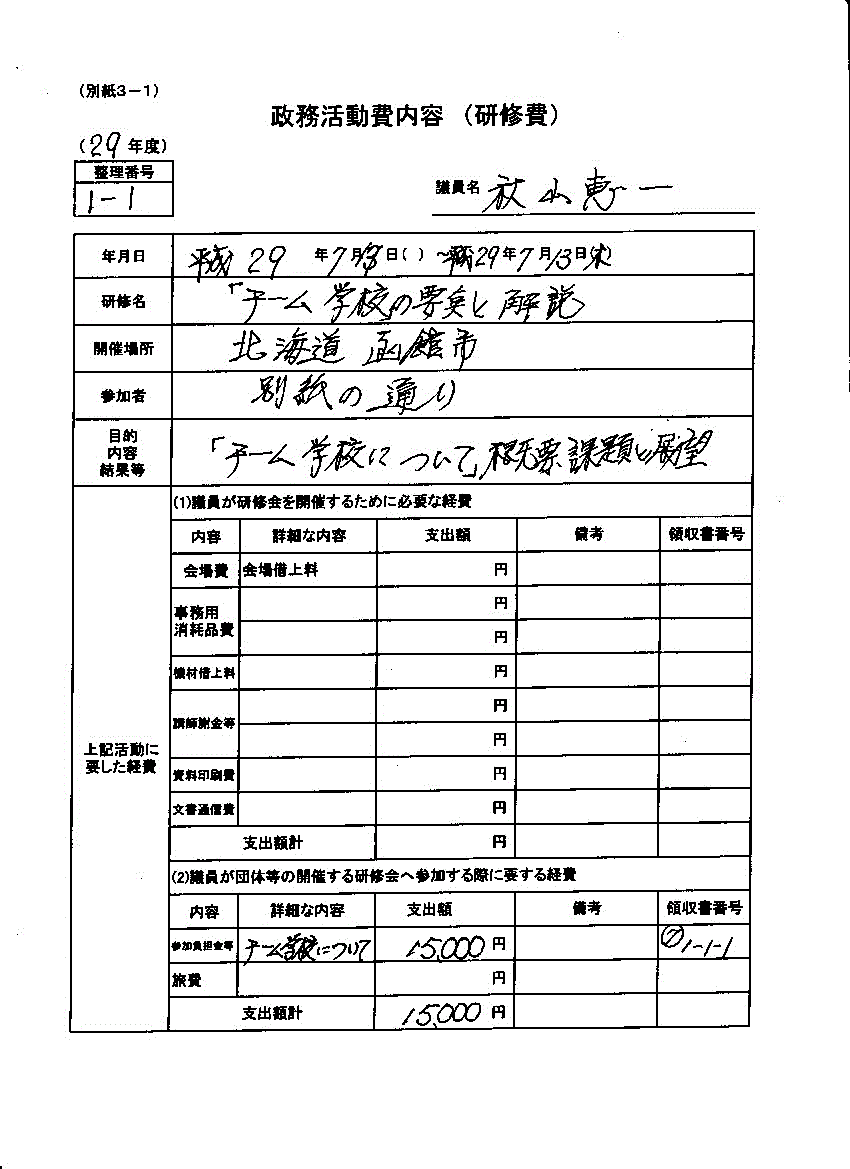 (別紙3-1)
政務活動費内容 (研修費)
(29 年度)
整理番号
1-1
議員名 秋山恵一
年月日 平成 29 年7月13日( ) ~平成29年7月13日(木)
研修名 「チーム学校」の要点と解説
開催場所 北海道 函館市
参加者 別紙の通り
目的
内容
結果等
「チーム学校について」 課題と展望
上記活動に
要した経費
(1)議員が研修会を開催するために必要な経費
内容 詳細な内容 支出額 備考 領収書番号
会場費 会場借上料 円
事務用
消耗品費
円
円
機材借上料 円
講師謝金等
円
円
資料印刷費 円
文書通信費 円
支出額計 円
(2)議員が団体等の開催する研修会へ参加する際に要する経費
内容 詳細な内容 支出額 備考 領収書番号
参加負担金等 チーム学校について 15,000 円 ⑦1-1-1
旅費 円
支出額計 15,000 円